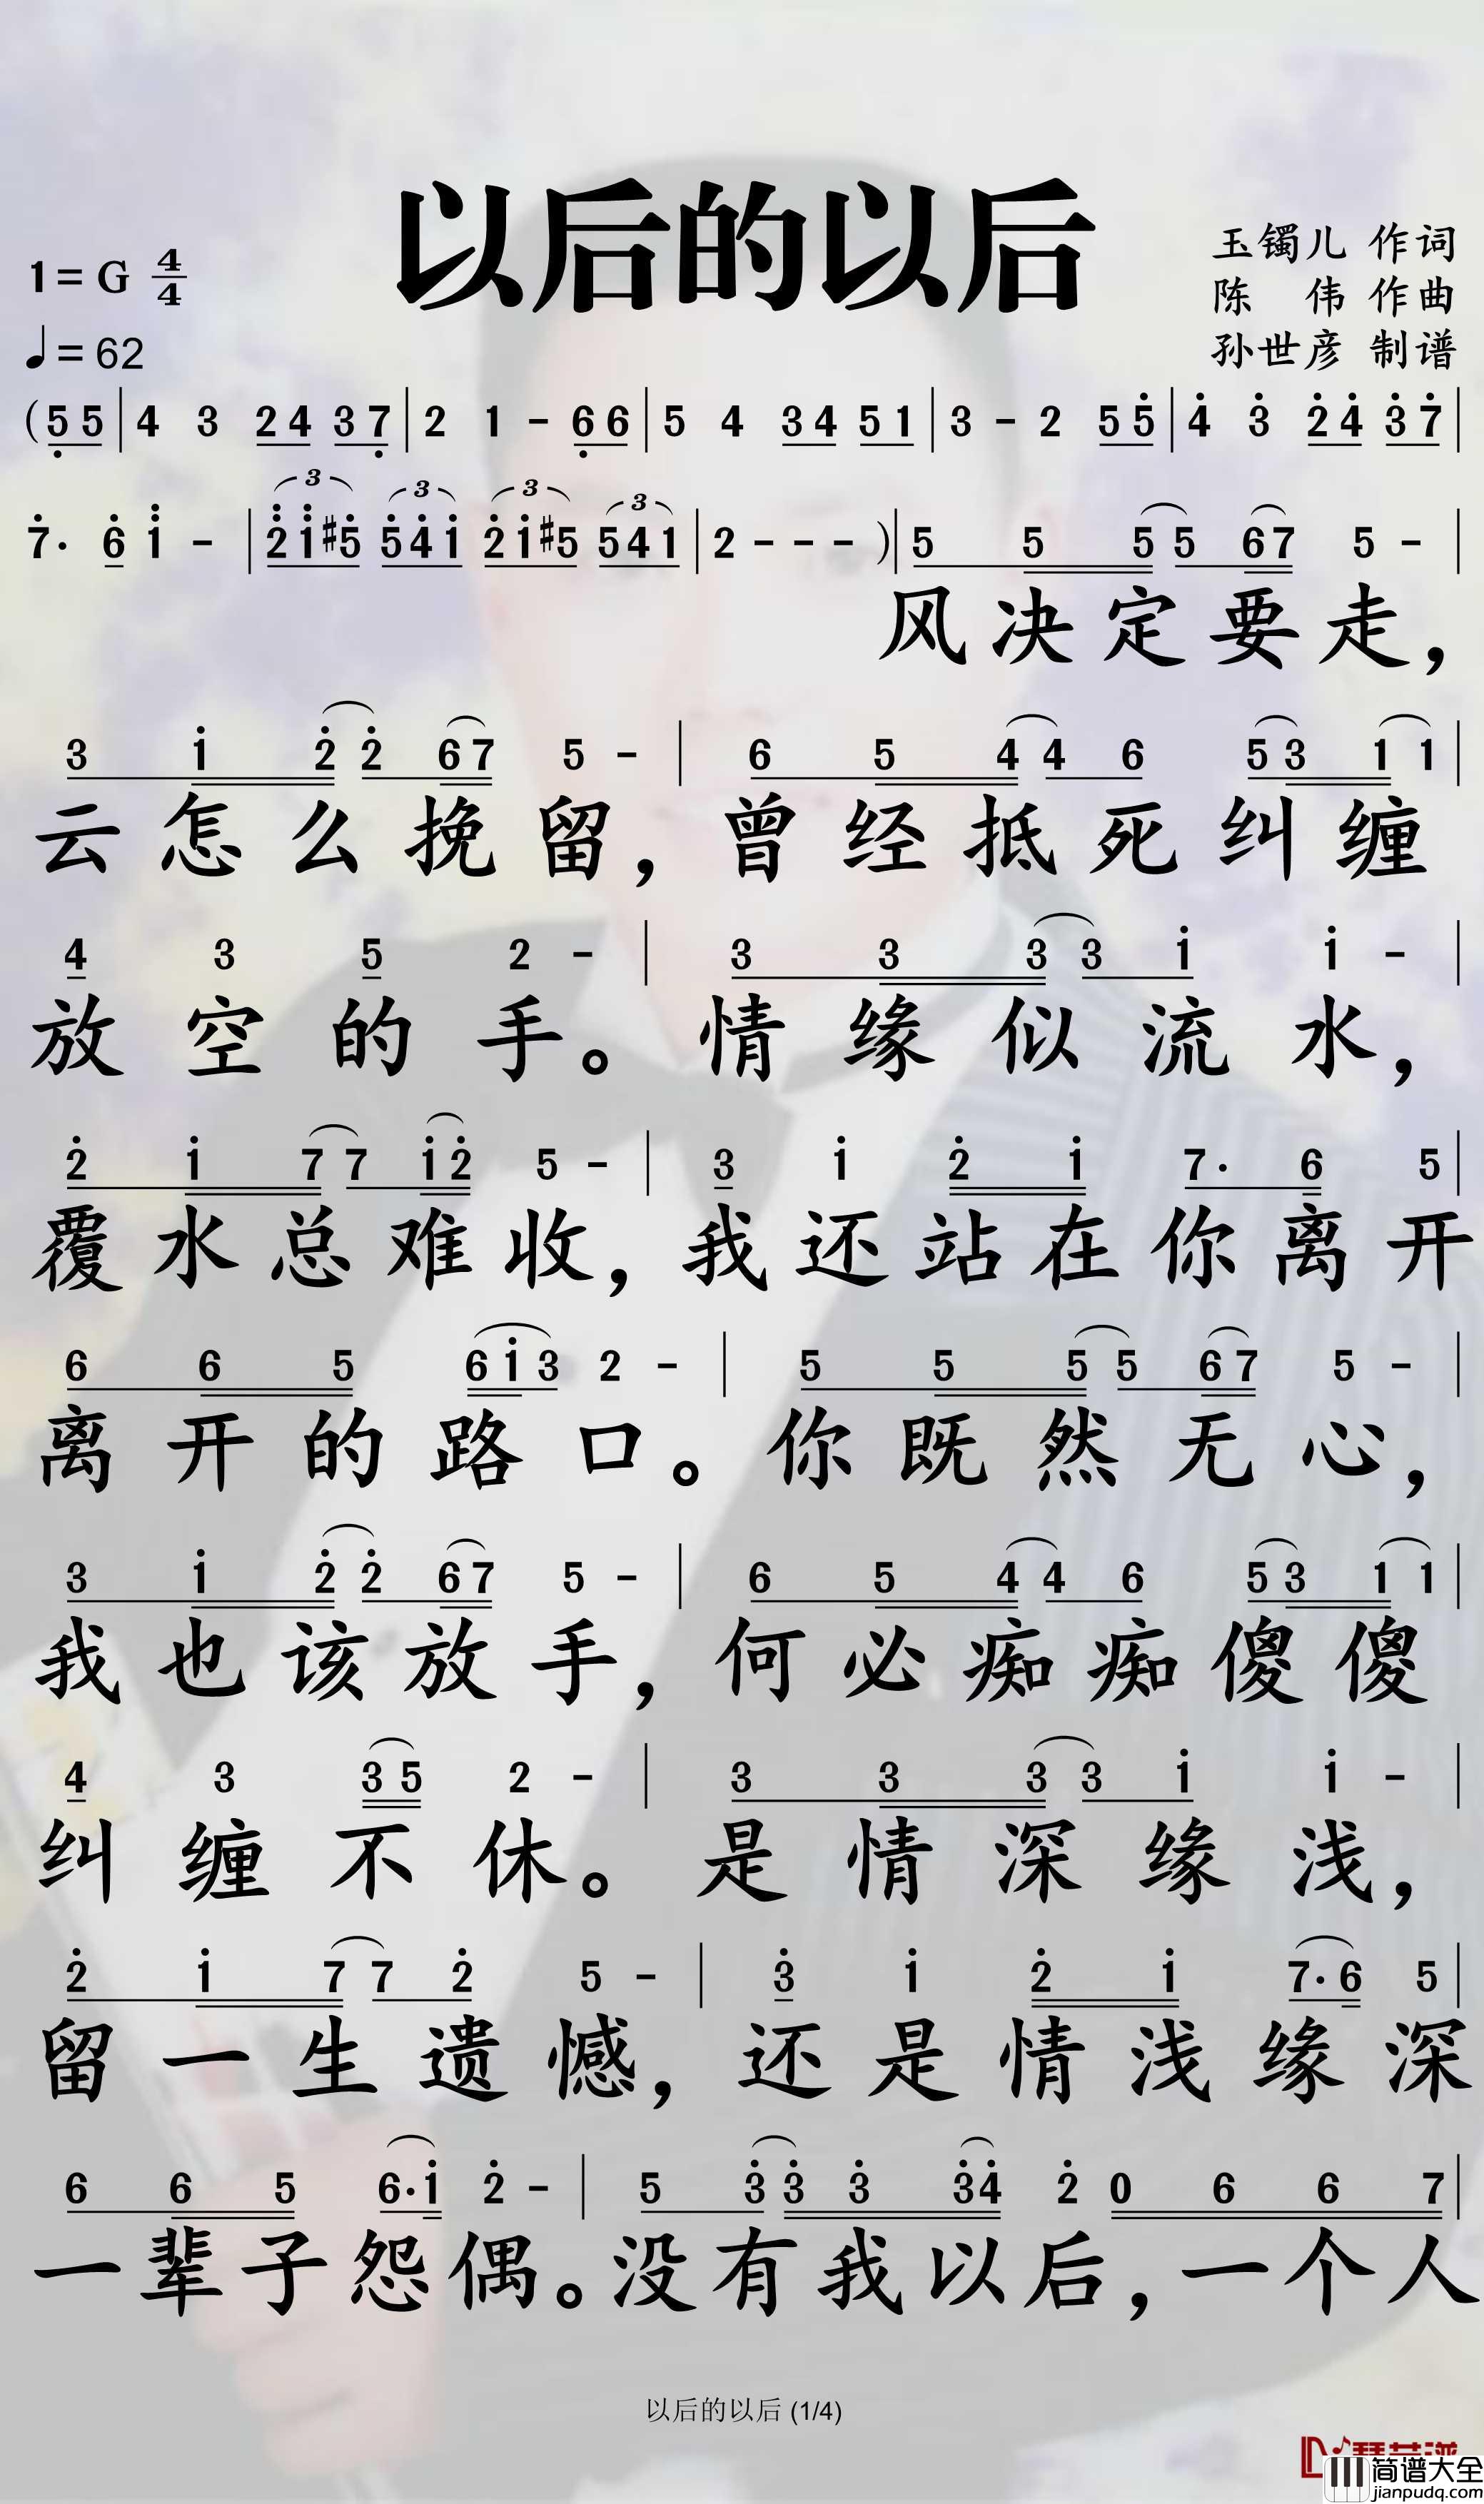 以后的以后
1=G 4/4
♩=62
玉镯儿 作词
陈 伟 作曲
孙世彦 制谱
(5 5|4 3 2 4 3 7|2 1 - 6 6|5 4 3 4 5 1|3 - 2 5 5|4 3 2 4 3 7|
7· 6 1 -|2 1 #5 5 4 1 2 1 #5 5 4 1|2 - - -)|5 5 5 5 6 7 5 -|
3 3 3 3
风决定要走，
3 1 2 2 6 7 5 -|6 5 4 4 6 5 3 1 1|
云怎么挽留，曾经抵死纠缠
4 3 5 2 -|3 3 3 3 1 1 -|
放空的手。情缘似流水，
2 1 7 7 1 2 5 -|3 1 2 1 7· 6 5|
覆水总难收，我还站在你离开
6 6 5 6 1 3 2 -|5 5 5 5 6 7 5 -|
离开的路口。你既然无心，
3 1 2 2 6 7 5 -|6 5 4 4 6 5 3 1 1|
我也该放手，何必痴痴傻傻
4 3 3 5 2 -|3 3 3 3 1 1 -|
纠缠不休。是情深缘浅，
2 1 7 7 2 5 -|3 1 2 1 7· 6 5|
留一生遗憾，还是情浅缘深
6 6 5 6· 1 2 -|5 3 3 3 3 4 2 0 6 6 7|
一辈子怨偶。没有我以后，一个人
以后的以后 (1/4)
简谱大全
jianpudq.com